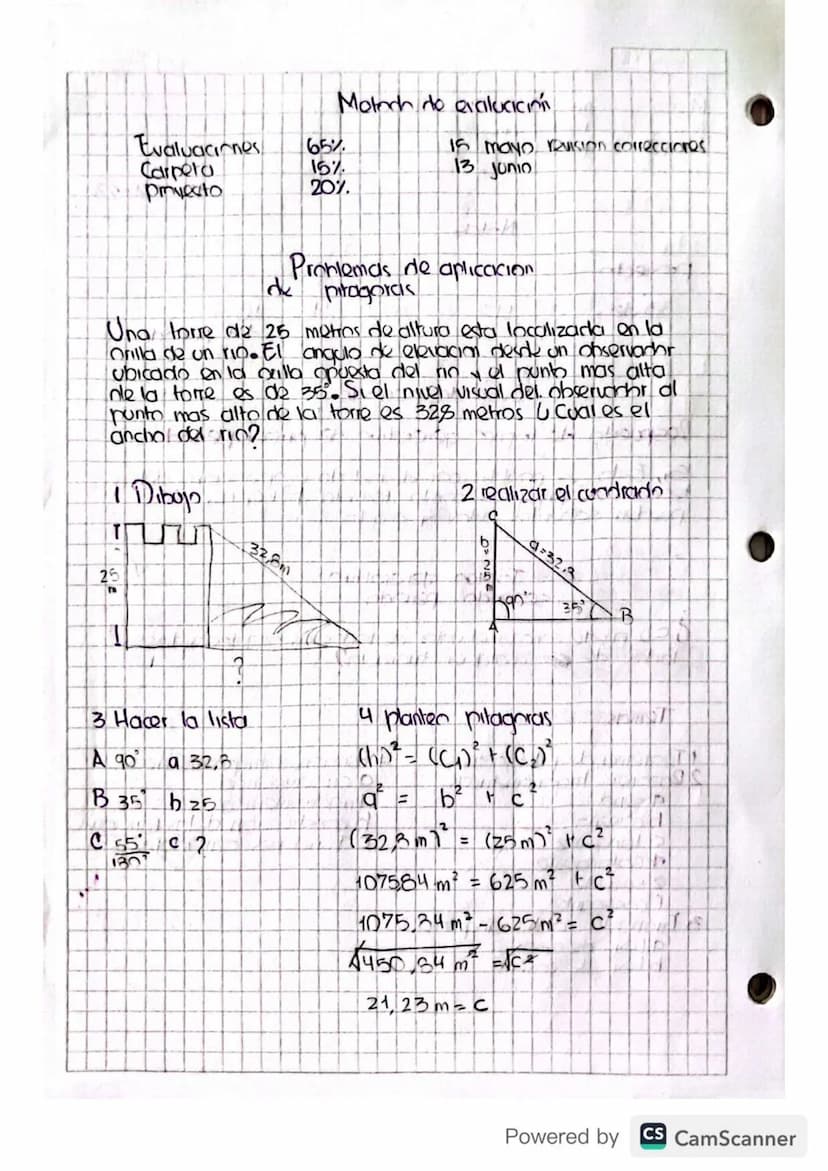 Metodo de evaluación
Evaluaciones 65% 15 mayo revision correcciones
Carpeta 15% 13 junio
proyecto 20%.
Problemas de aplicacion
de pitagoras
Una torre de 25 metros de altura esta localizada en la
orilla de un rio. El angulo de elevacion desde un observador
ubicado en la orilla opuesta del rio y el punto mas alto
de la torre es de 35°. Si el nivel visual del observador al
punto mas alto de la torre es 32,8 metros ¿Cual es el
ancho del rio?
1 Dibujo
2 realizar el cuadrado
25 m
32,8m
?
C
b=25m
a=32,8
90°
35°
A
B
3 Hacer la lista
A 90° a 32,8
B 35° b 25
C 55° c ?
4 planteo pitagoras
(h)² = (C₁)² + (C₂)²
a² = b² + c²
(32,8m)² = (25m)² + c²
107584 m² = 625 m² + c²
1075,84 m² - 625 m² = c²
√450,84 m² = √c²
21,23 m = c
Powered by CS CamScanner